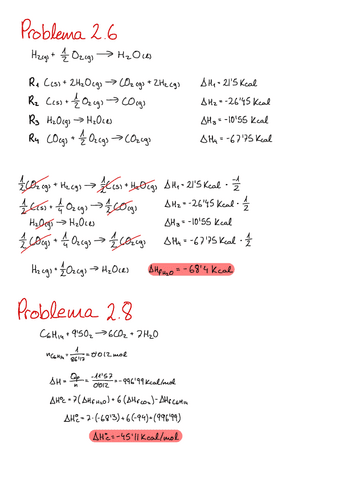 Problema 2.6
H₂(g) + 1/2 O₂(g) → H₂O(l)
R₁ C(s) + 2H₂O(g) → CO₂(g) + 2H₂(g) ΔH₁ = 21'5 Kcal
R₂ C(s) + 1/2 O₂(g) → CO(g) ΔH₂ = -26'45 Kcal
R₃ H₂O(g) → H₂O(l) ΔH₃ = -10'55 Kcal
R₄ CO(g) + 1/2 O₂(g) → CO₂(g) ΔH₄ = -67'75 Kcal
1/2 CO₂(g) + H₂(g) → 1/2 C(s) + H₂O(g) ΔH₁ = 21'5 Kcal · -1/2
1/2 C(s) + 1/4 O₂(g) → 1/2 CO(g) ΔH₂ = -26'45 Kcal · 1/2
H₂O(g) → H₂O(l) ΔH₃ = -10'55 Kcal
1/2 CO(g) + 1/4 O₂(g) → 1/2 CO₂(g) ΔH₄ = -67'75 Kcal · 1/2
H₂(g) + 1/2 O₂(g) → H₂O(l) ΔHf H₂O = -68'4 Kcal
Problema 2.8
C₆H₁₄ + 9'5O₂ → 6CO₂ + 7H₂O
nC₆H₁₄ = 1/86'17 = 0'012 mol
ΔH = Qp/n = -11'57/0'012 = -996'99 Kcal/mol
ΔH°c = 7(ΔHf H₂O) + 6(ΔHf CO₂) - ΔHf C₆H₁₄
ΔH°c = 7·(-68'3) + 6(-94) + (996'99)
ΔH°c = -45'11 Kcal/mol